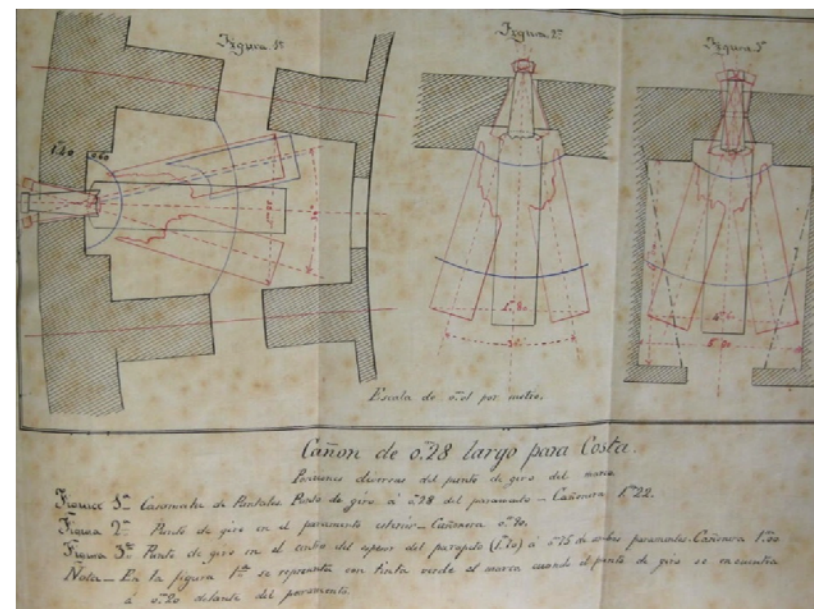 Figura 1ª
Figura 2ª
Figura 3ª
1.m50
0.60
Escala de 0.m01 por metro.
Cañon de 0.m28 largo para Costa.
Posiciones diversas del punto de giro del marco
Figura 1ª Casamata de Puntales. Punto de giro á 0.m28 del paramento — Cañonera 1.m22.
Figura 2ª Punto de giro en el paramento exterior — Cañonera 0.m90.
Figura 3ª Punto de giro en el centro del espesor del parapeto (1.m50) á 0.m75 de ambos paramentos. Cañonera 1.m00
Nota — En la figura 1ª se representa con tinta verde el marco cuando el punto de giro se encuentra
á 0.m20 delante del paramento.